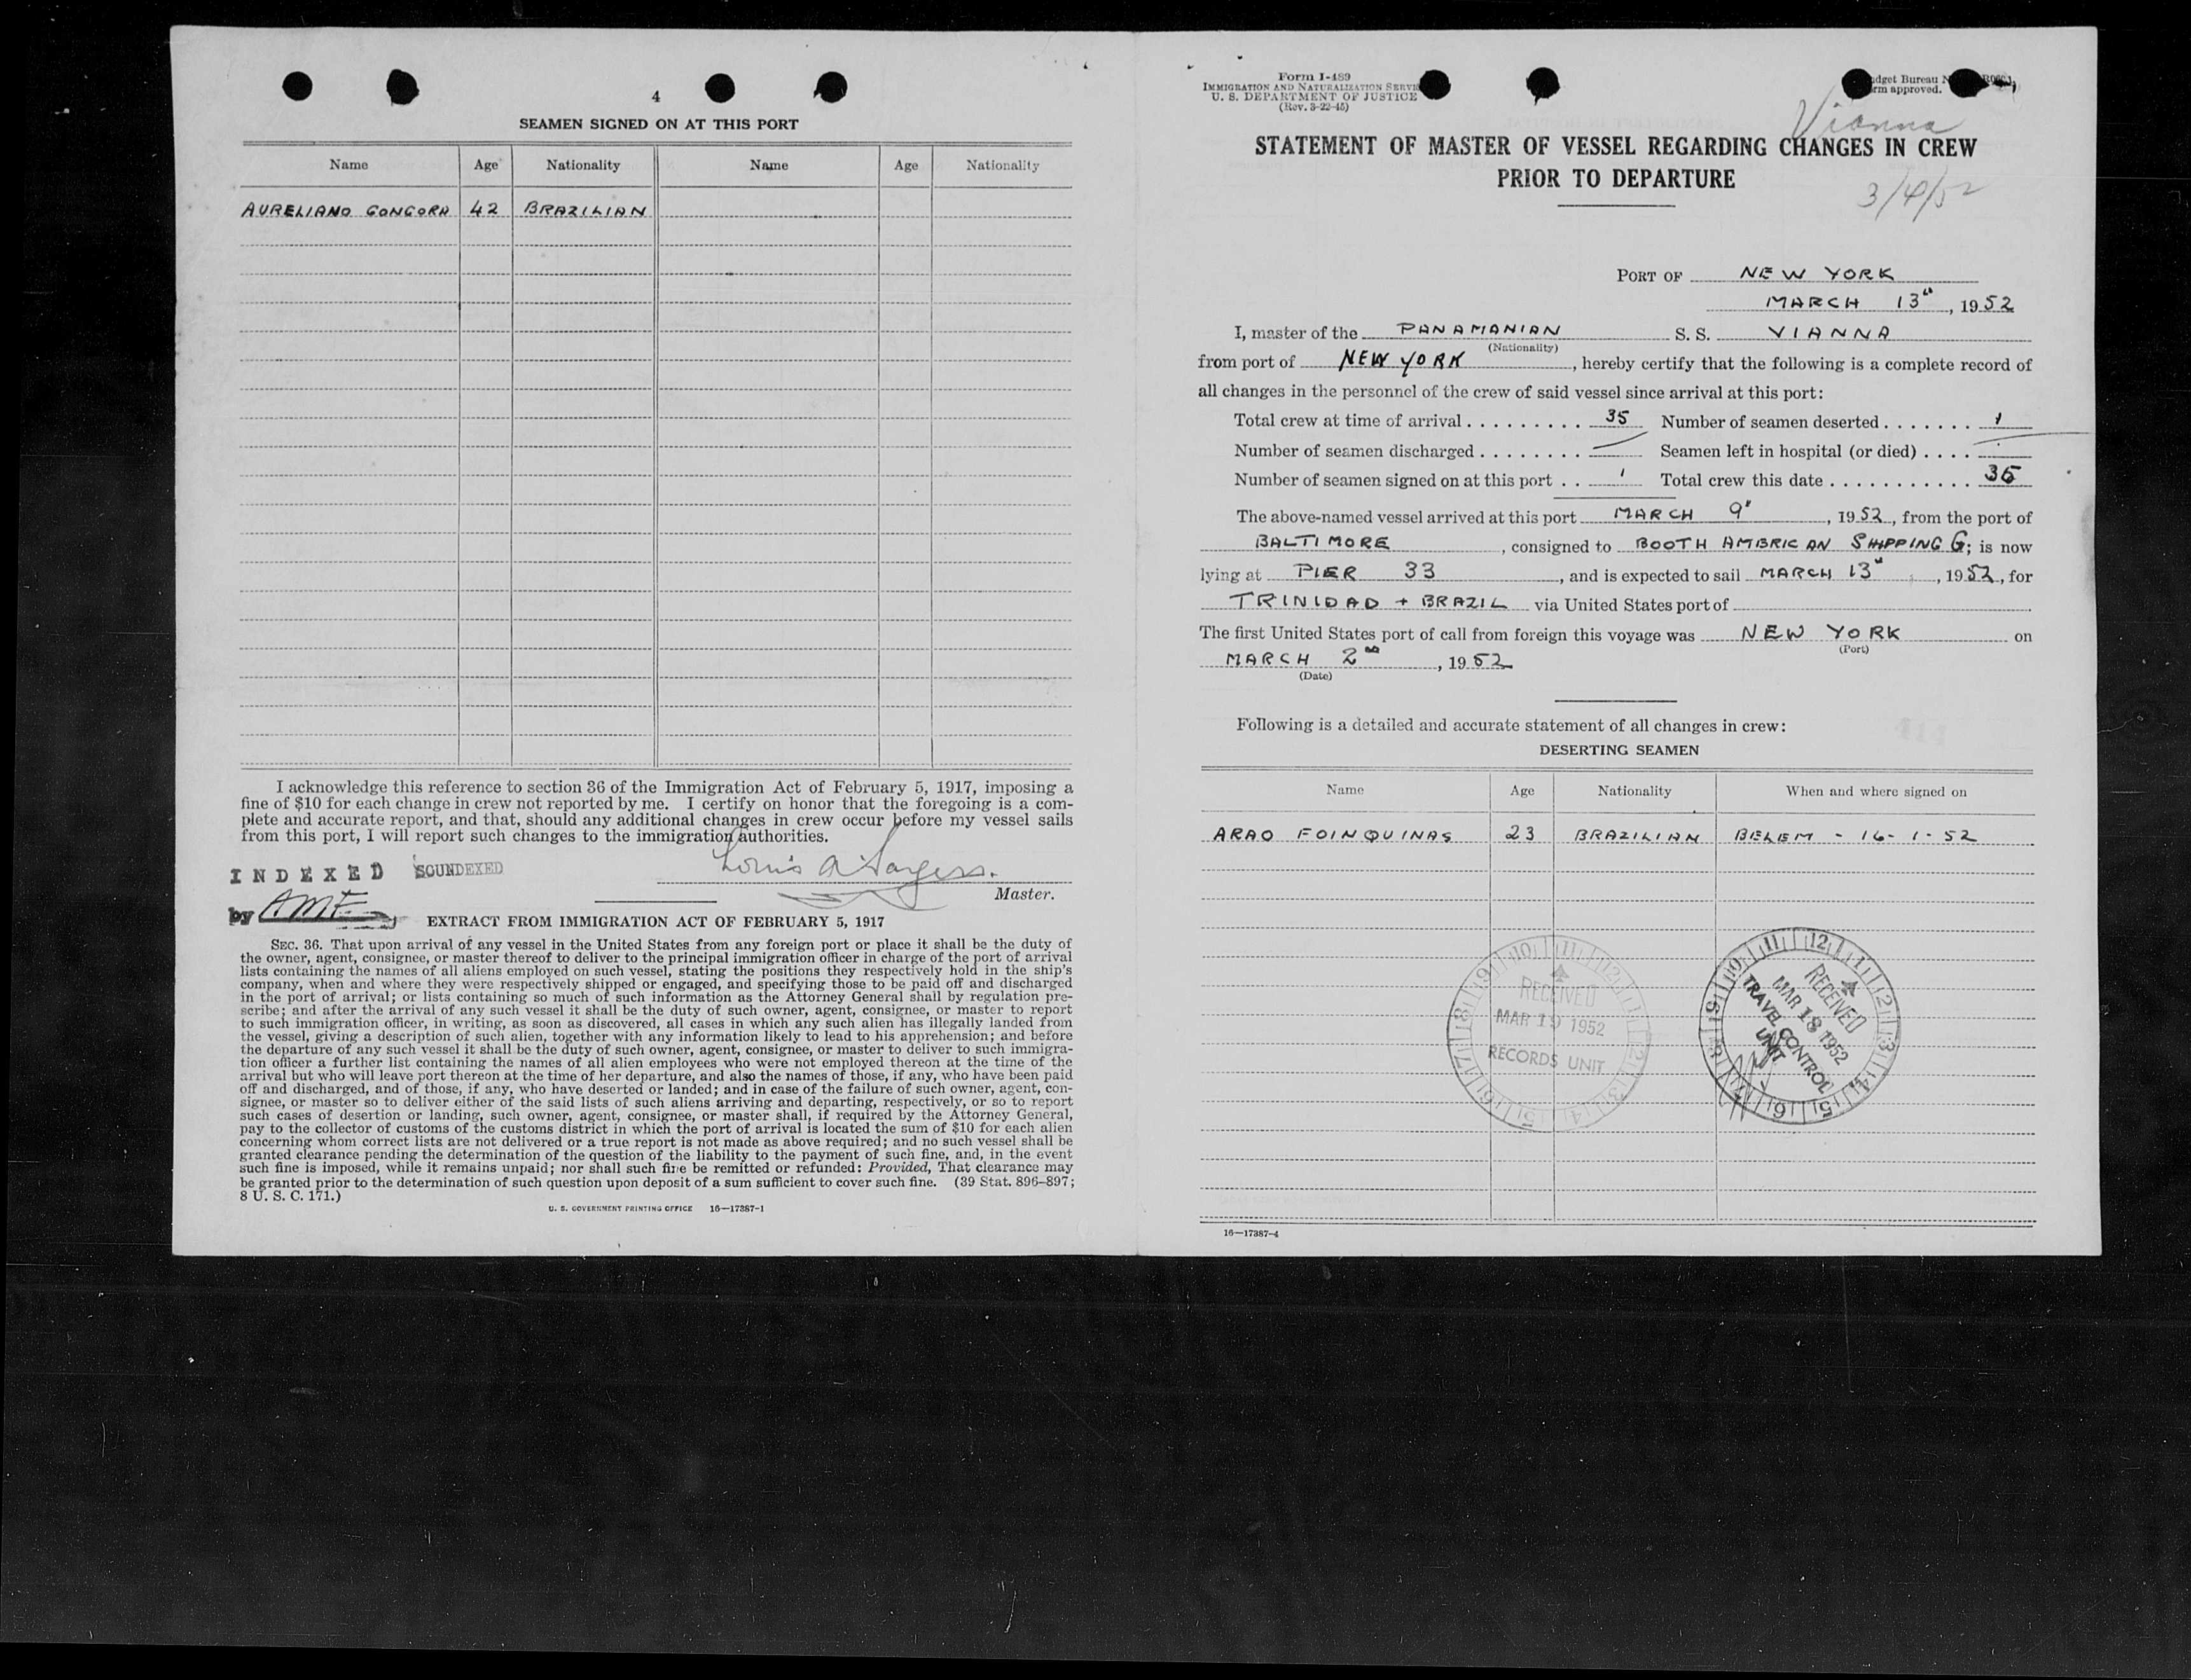 4
SEAMEN SIGNED ON AT THIS PORT
Name Age Nationality Name Age Nationality
AURELIANO GONGORA 42 BRAZILIAN
I acknowledge this reference to section 36 of the Immigration Act of February 5, 1917, imposing a
fine of $10 for each change in crew not reported by me. I certify on honor that the foregoing is a com-
plete and accurate report, and that, should any additional changes in crew occur before my vessel sails
from this port, I will report such changes to the immigration authorities.
INDEXED SOUNDEXED
Louis A.
Master.
by AMF
EXTRACT FROM IMMIGRATION ACT OF FEBRUARY 5, 1917
SEC. 36. That upon arrival of any vessel in the United States from any foreign port or place it shall be the duty of
the owner, agent, consignee, or master thereof to deliver to the principal immigration officer in charge of the port of arrival
lists containing the names of all aliens employed on such vessel, stating the positions they respectively hold in the ship's
company, when and where they were respectively shipped or engaged, and specifying those to be paid off and discharged
in the port of arrival; or lists containing so much of such information as the Attorney General shall by regulation pre-
scribe; and after the arrival of any such vessel it shall be the duty of such owner, agent, consignee, or master to report
to such immigration officer, in writing, as soon as discovered, all cases in which any such alien has illegally landed from
the vessel, giving a description of such alien, together with any information likely to lead to his apprehension; and before
the departure of any such vessel it shall be the duty of such owner, agent, consignee, or master to deliver to such immigra-
tion officer a further list containing the names of all alien employees who were not employed thereon at the time of the
arrival but who will leave port thereon at the time of her departure, and also the names of those, if any, who have been paid
off and discharged, and of those, if any, who have deserted or landed; and in case of the failure of such owner, agent, con-
signee, or master so to deliver either of the said lists of such aliens arriving and departing, respectively, or so to report
such cases of desertion or landing, such owner, agent, consignee, or master shall, if required by the Attorney General,
pay to the collector of customs of the customs district in which the port of arrival is located the sum of $10 for each alien
concerning whom correct lists are not delivered or a true report is not made as above required; and no such vessel shall be
granted clearance pending the determination of the question of the liability to the payment of such fine, and, in the event
such fine is imposed, while it remains unpaid; nor shall such fine be remitted or refunded: Provided, That clearance may
be granted prior to the determination of such question upon deposit of a sum sufficient to cover such fine. (39 Stat. 896-897;
8 U. S. C. 171.)
U. S. GOVERNMENT PRINTING OFFICE 16—17387-1
Form I-489
IMMIGRATION AND NATURALIZATION SERVI
U. S. DEPARTMENT OF JUSTICE
(Rev. 3-22-45)
dget Bureau N
rm approved.
Vianna
STATEMENT OF MASTER OF VESSEL REGARDING CHANGES IN CREW
PRIOR TO DEPARTURE
3/4/52
PORT OF NEW YORK
MARCH 13", 1952
I, master of the PANAMANIAN S. S. VIANNA
(Nationality)
from port of NEW YORK, hereby certify that the following is a complete record of
all changes in the personnel of the crew of said vessel since arrival at this port:
Total crew at time of arrival . . . . . . . . . 35 Number of seamen deserted . . . . . . . 1
Number of seamen discharged . . . . . . . . — Seamen left in hospital (or died) . . . . —
Number of seamen signed on at this port . . 1 Total crew this date . . . . . . . . . . . 35
The above-named vessel arrived at this port MARCH 9", 1952, from the port of
BALTIMORE, consigned to BOOTH AMERICAN SHIPPING Co; is now
lying at PIER 33, and is expected to sail MARCH 13", 1952, for
TRINIDAD + BRAZIL via United States port of
The first United States port of call from foreign this voyage was NEW YORK on
(Port)
MARCH 2nd, 1952
(Date)
Following is a detailed and accurate statement of all changes in crew:
DESERTING SEAMEN
Name Age Nationality When and where signed on
ARAO FOINQUINAS 23 BRAZILIAN BELEM - 16-1-52
RECEIVED
MAR 19 1952
RECORDS UNIT
RECEIVED
MAR 18 1952
TRAVEL CONTROL
UNIT
16—17387-4